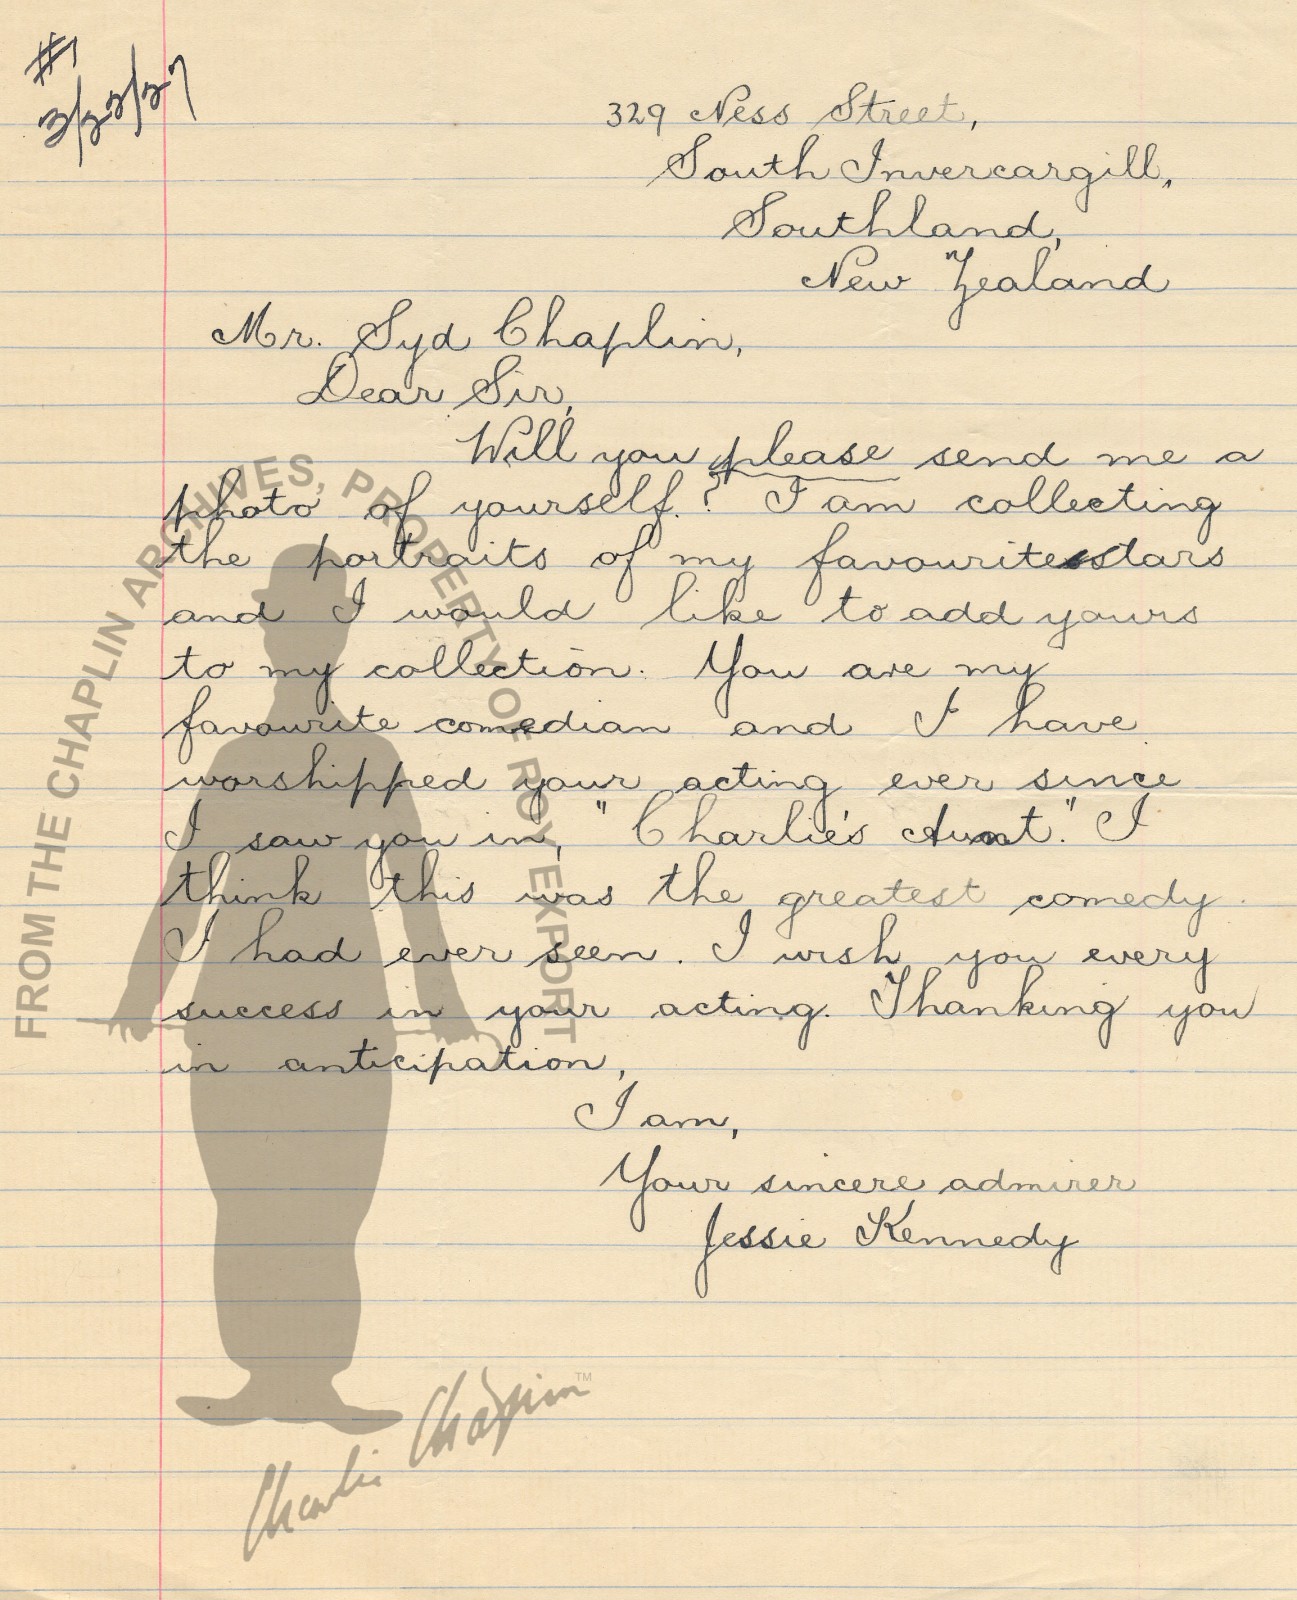 #1
3/23/27
329 Ness Street,
South Invercargill,
Southland,
New Zealand
Mr. Syd Chaplin,
Dear Sir,
Will you please send me a
photo of yourself.? I am collecting
the portraits of my favourite stars
and I would like to add yours
to my collection. You are my
favourite comedian and I have
worshipped your acting ever since
I saw you in, "Charlie's Aunt." I
think this was the greatest comedy
I had ever seen. I wish you every
success in your acting. Thanking you
in anticipation,
I am,
Your sincere admirer
Jessie Kennedy
FROM THE CHAPLIN ARCHIVES, PROPERTY OF ROY EXPORT
Charlie Chaplin™